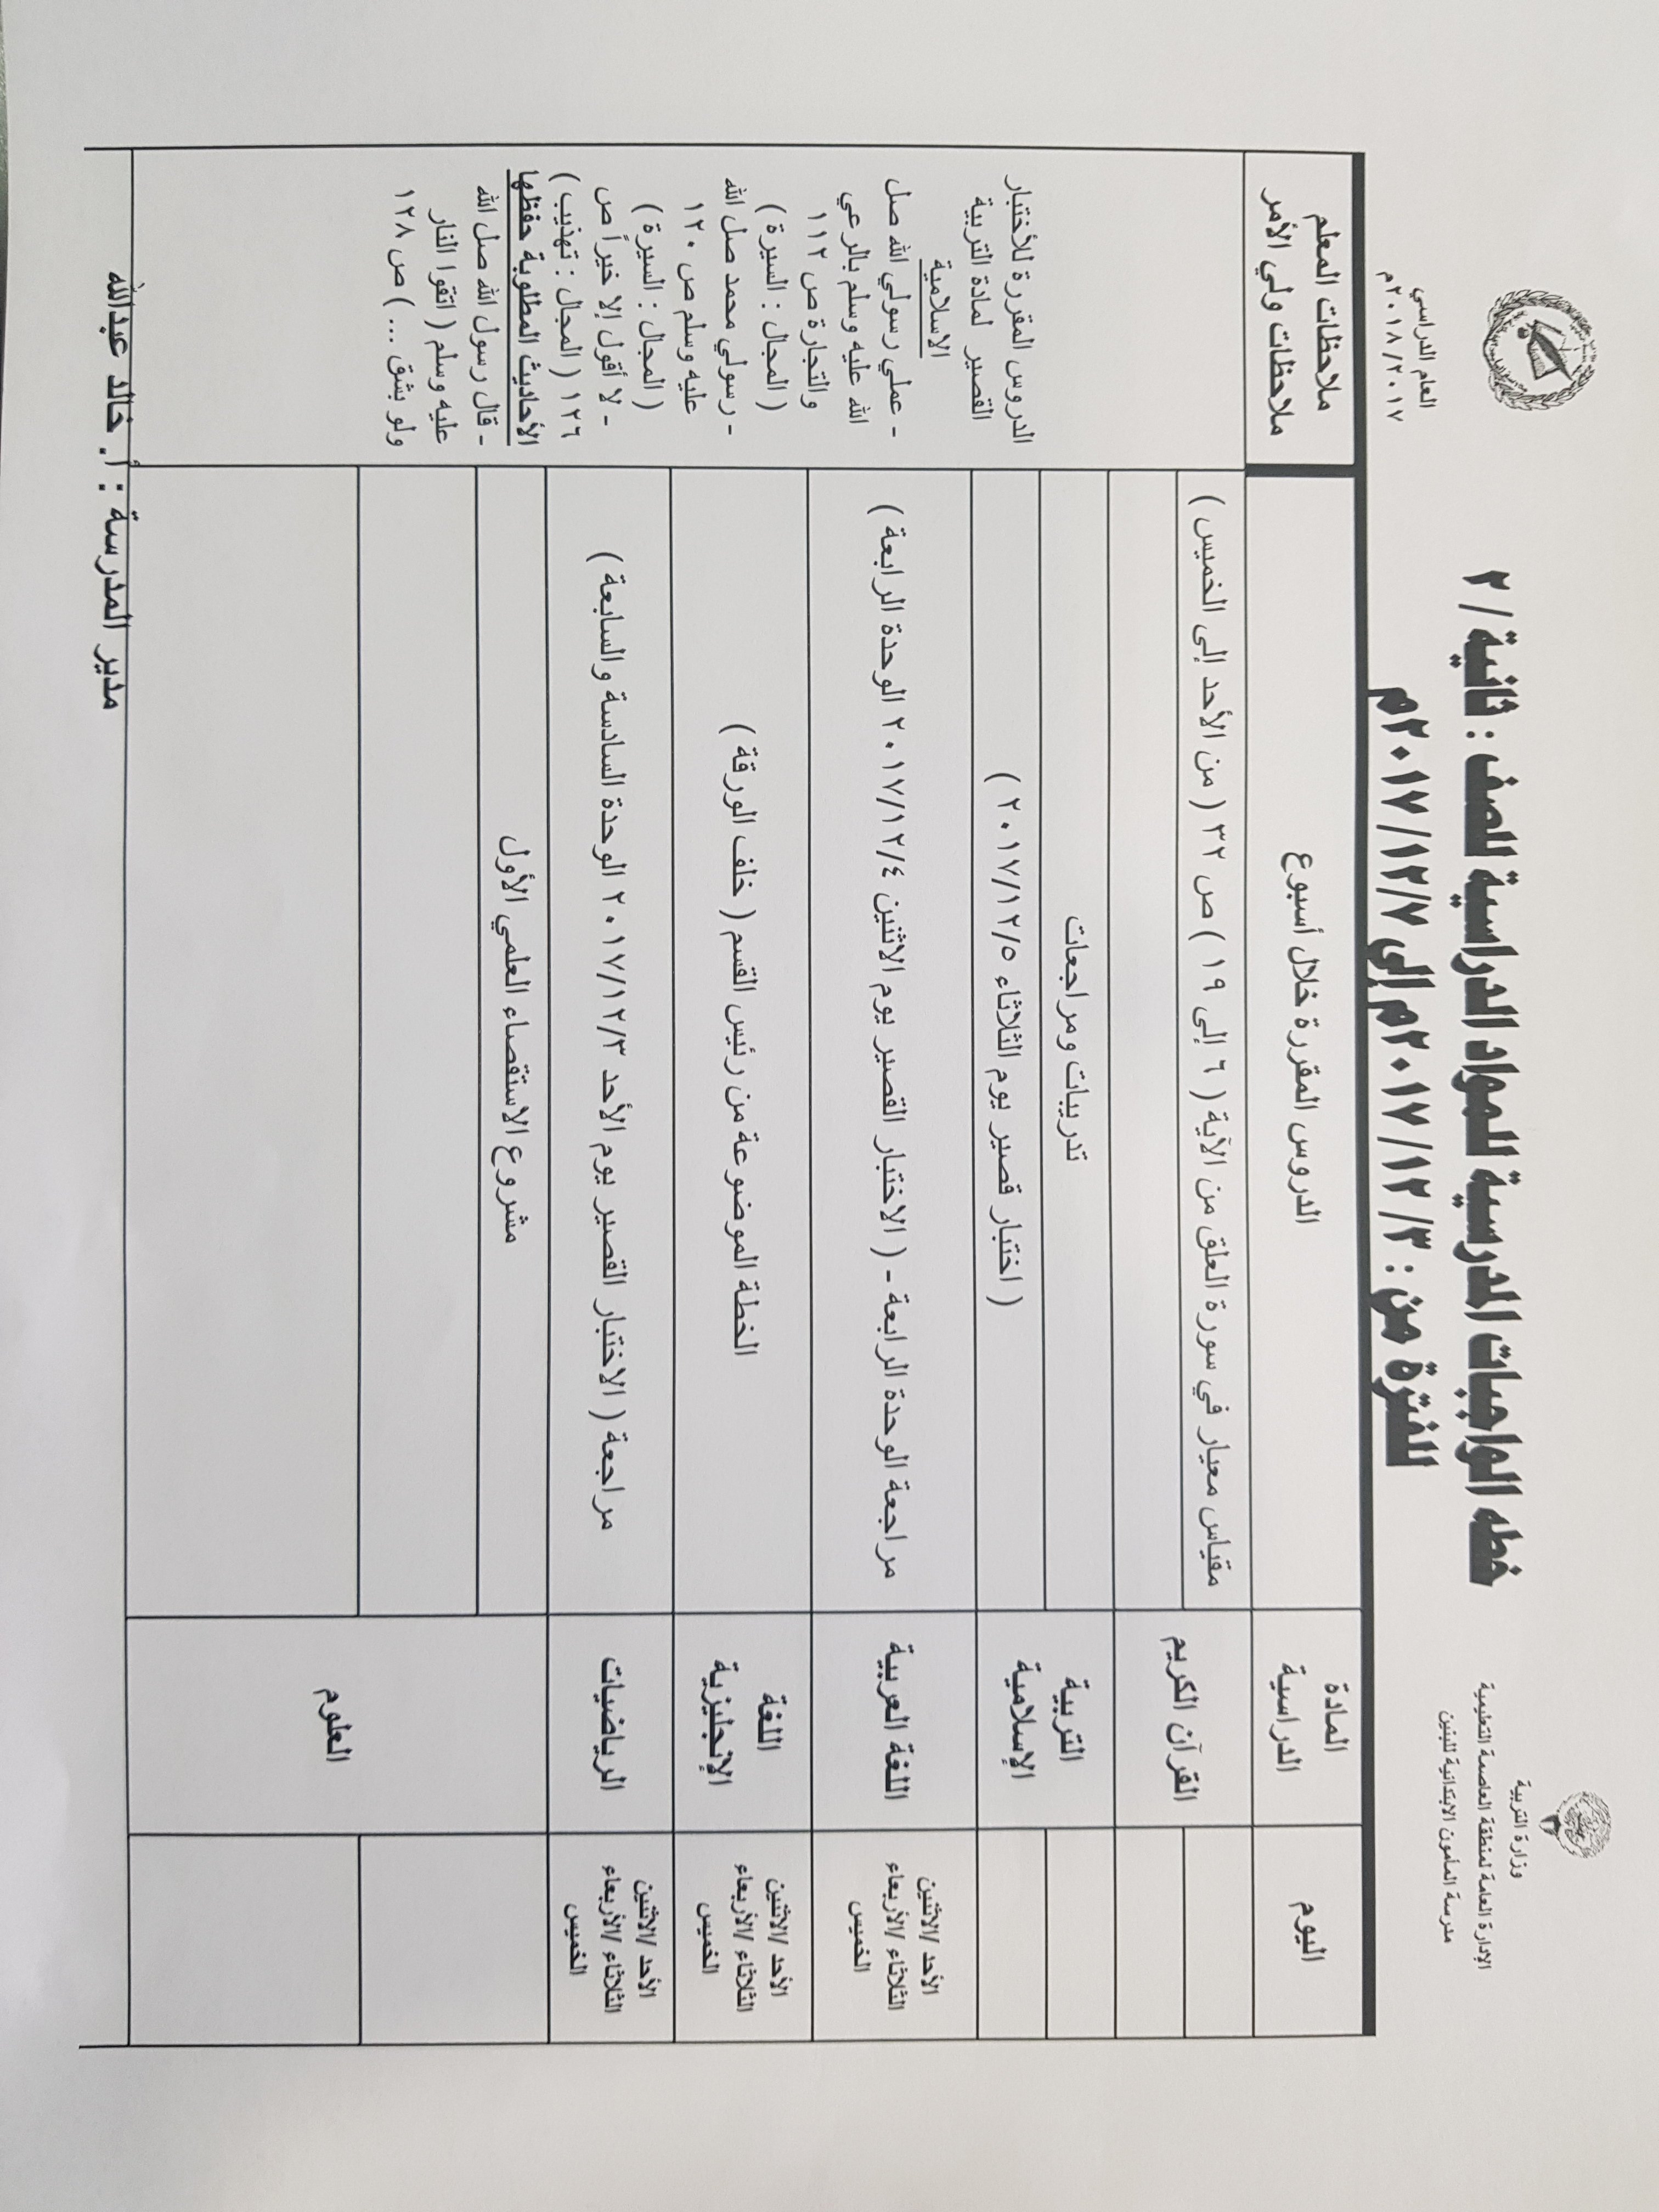 وزارة التربية
الإدارة العامة لمنطقة العاصمة التعليمية
مدرسة المأمون الابتدائية للبنين
خطه الواجبات المدرسية للمواد الدراسية للصف : ثانية / ٢
للفترة من : ٢٠١٧/١٢/٣م إلى ٢٠١٧/١٢/٧م
العام الدراسي
٢٠١٨/٢٠١٧م
اليوم
المادة
الدراسية
الدروس المقررة خلال أسبوع
ملاحظات المعلم
ملاحظات ولي الأمر
القرآن الكريم
مقياس معيار في سورة العلق من الآية ( ٦ إلى ١٩ ) ص ٣٢ ( من الأحد إلى الخميس )
التربية
الإسلامية
تدريبات ومراجعات
( اختبار قصير يوم الثلاثاء ٢٠١٧/١٢/٥ )
الأحد /الاثنين
الثلاثاء /الأربعاء
الخميس
اللغة العربية
مراجعة الوحدة الرابعة - ( الاختبار القصير يوم الاثنين ٢٠١٧/١٢/٤ الوحدة الرابعة )
الأحد /الاثنين
الثلاثاء /الأربعاء
الخميس
اللغة
الإنجليزية
الخطة الموضوعة من رئيس القسم ( خلف الورقة )
الأحد /الاثنين
الثلاثاء /الأربعاء
الخميس
الرياضيات
مراجعة ( الاختبار القصير يوم الأحد ٢٠١٧/١٢/٣ الوحدة السادسة والسابعة )
العلوم
مشروع الاستقصاء العلمي الأول
الدروس المقررة للأختبار
القصير لمادة التربية
الاسلامية
- عملي رسولي الله صل
الله عليه وسلم بالرعي
والتجارة ص ١١٢
( المجال : السيرة )
- رسولي محمد صل الله
عليه وسلم ص ١٢٠
( المجال : السيرة )
- لا أقول إلا خيراً ص
١٢٦ ( المجال : تهذيب )
الأحاديث المطلوبة حفظها
- قال رسول الله صل الله
عليه وسلم ( اتقوا النار
ولو بشق ... ) ص ١٢٨
مدير المدرسة : أ. خالد عبدالله